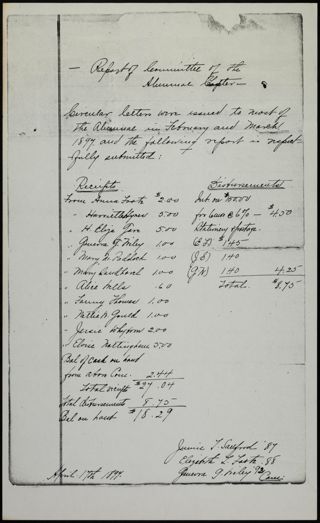 — Report of Committee of the
Alumnae Chapter —
Circular letters were issued to most of
the Alumnae in February and March
1897 and the following report is respect-
fully submitted:
Receipts
From Anna Foote $2.00
" Harriet 5.00
" H. Eloye 5.00
" Geneva G Wiley 1.00
" Mary 1.00
" Mary 1.00
" Alice Wells .60
" Fanny 1.00
" Nettie N. Gould 1.00
" Jessie 2.00
" Elouise Nottingham 5.00
Bal of Cash on hand
from Com. 2.44
Total receipts $27.04
Total disbursements 8.75
Bal on hand $18.29
Disbursements
Int on
for 6mo @ 6% — $4.50
Stationery & postage
$1.45
1.40
1.40 4.25
Total. $8.75
Jennie T. Sanford '87
Elizabeth L. '88
Geneva G Wiley '92
Com:
April 17th 1897.